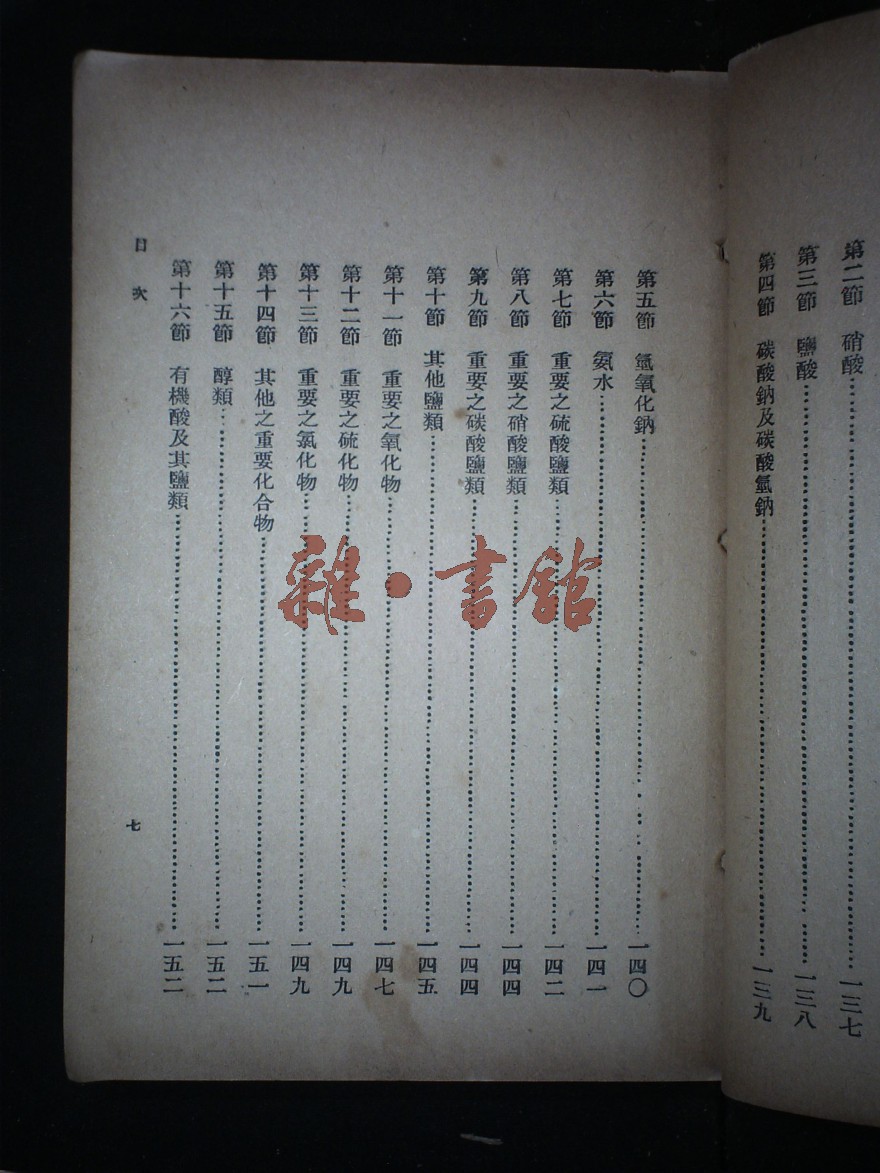 第二節　硝酸……一三七
第三節　鹽酸……一三八
第四節　碳酸鈉及碳酸氫鈉……一三九
第五節　氫氧化鈉……一四〇
第六節　氨水……一四一
第七節　重要之硫酸鹽類……一四二
第八節　重要之硝酸鹽類……一四四
第九節　重要之碳酸鹽類……一四四
第十節　其他鹽類……一四五
第十一節　重要之氧化物……一四七
第十二節　重要之硫化物……一四九
第十三節　重要之氯化物……一四九
第十四節　其他之重要化合物……一五一
第十五節　醇類……一五二
第十六節　有機酸及其鹽類……一五二
目次
七
雜·書館